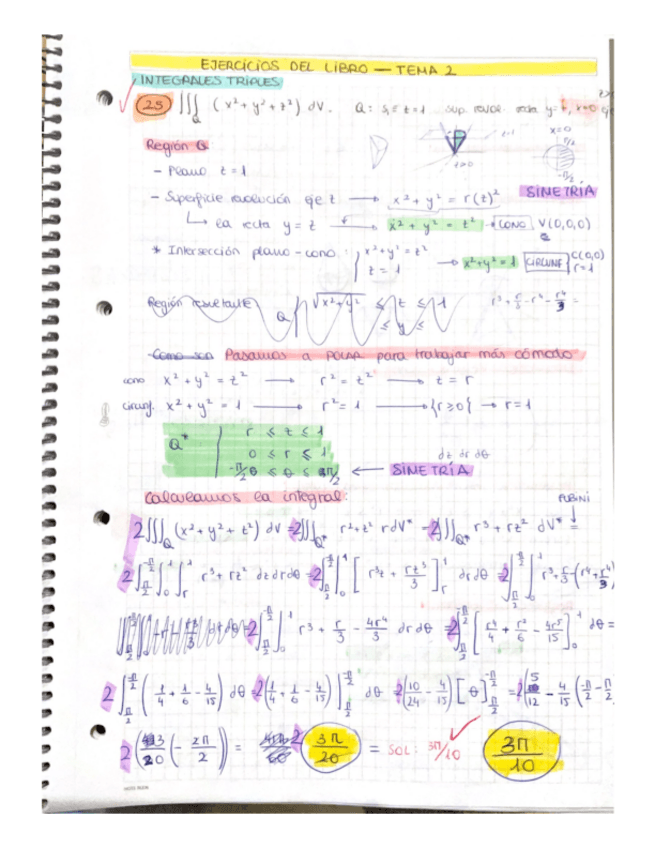 EJERCICIOS DEL LIBRO — TEMA 2
INTEGRALES TRIPLES
25 ∭_Q (x² + y² + z²) dV. Q: z=1 sup. revol. recta y=z, x=0 eje
Región Q
z=1
z≥0
x=0
π/2
-π/2
- Plano z=1
SIMETRÍA
- Superficie revolución eje z → x² + y² = r(z)²
↳ la recta y = z → x² + y² = z² → CONO V(0,0,0)
* Intersección plano-cono: { x²+y² = z²
z = 1 → x²+y² = 1 CIRCUNF. C(0,0) r=1
Región resultante Q { √x²+y² ≤ z ≤ 1
≤ y ≤
Como son Pasamos a POLAR para trabajar más cómodo
cono x² + y² = z² → r² = z² → z = r
circunf. x² + y² = 1 → r² = 1 → {r≥0} → r=1
Q* { r ≤ z ≤ 1
0 ≤ r ≤ 1
dz dr dθ
-π/2 ≤ θ ≤ π/2 ← SIMETRÍA
Calculamos la integral:
FUBINI
2∭_Q (x² + y² + z²) dV = 2∭_Q* r²+z² r dV* = 2∭_Q* r³ + rz² dV*
2∫∫₀¹∫ᵣ¹ r³ + rz² dz dr dθ = 2∫∫₀¹ [r³z + rz³/3]ᵣ¹ dr dθ = 2∫∫₀¹ r³ + r/3 - (r⁴ + r⁴/3)
= 2∫∫₀¹ r³ + r/3 - 4r⁴/3 dr dθ = 2∫ [r⁴/4 + r²/6 - 4r⁵/15]₀¹ dθ =
2∫ (1/4 + 1/6 - 4/15) dθ = 2(1/4 + 1/6 - 4/15) dθ = 2(10/24 - 4/15) [θ] = 2(5/12 - 4/15 (-π/2 - π/2
2(3/20 (-2π/2)) = 2 3π/20 = SOL: 3π/10 3π/10